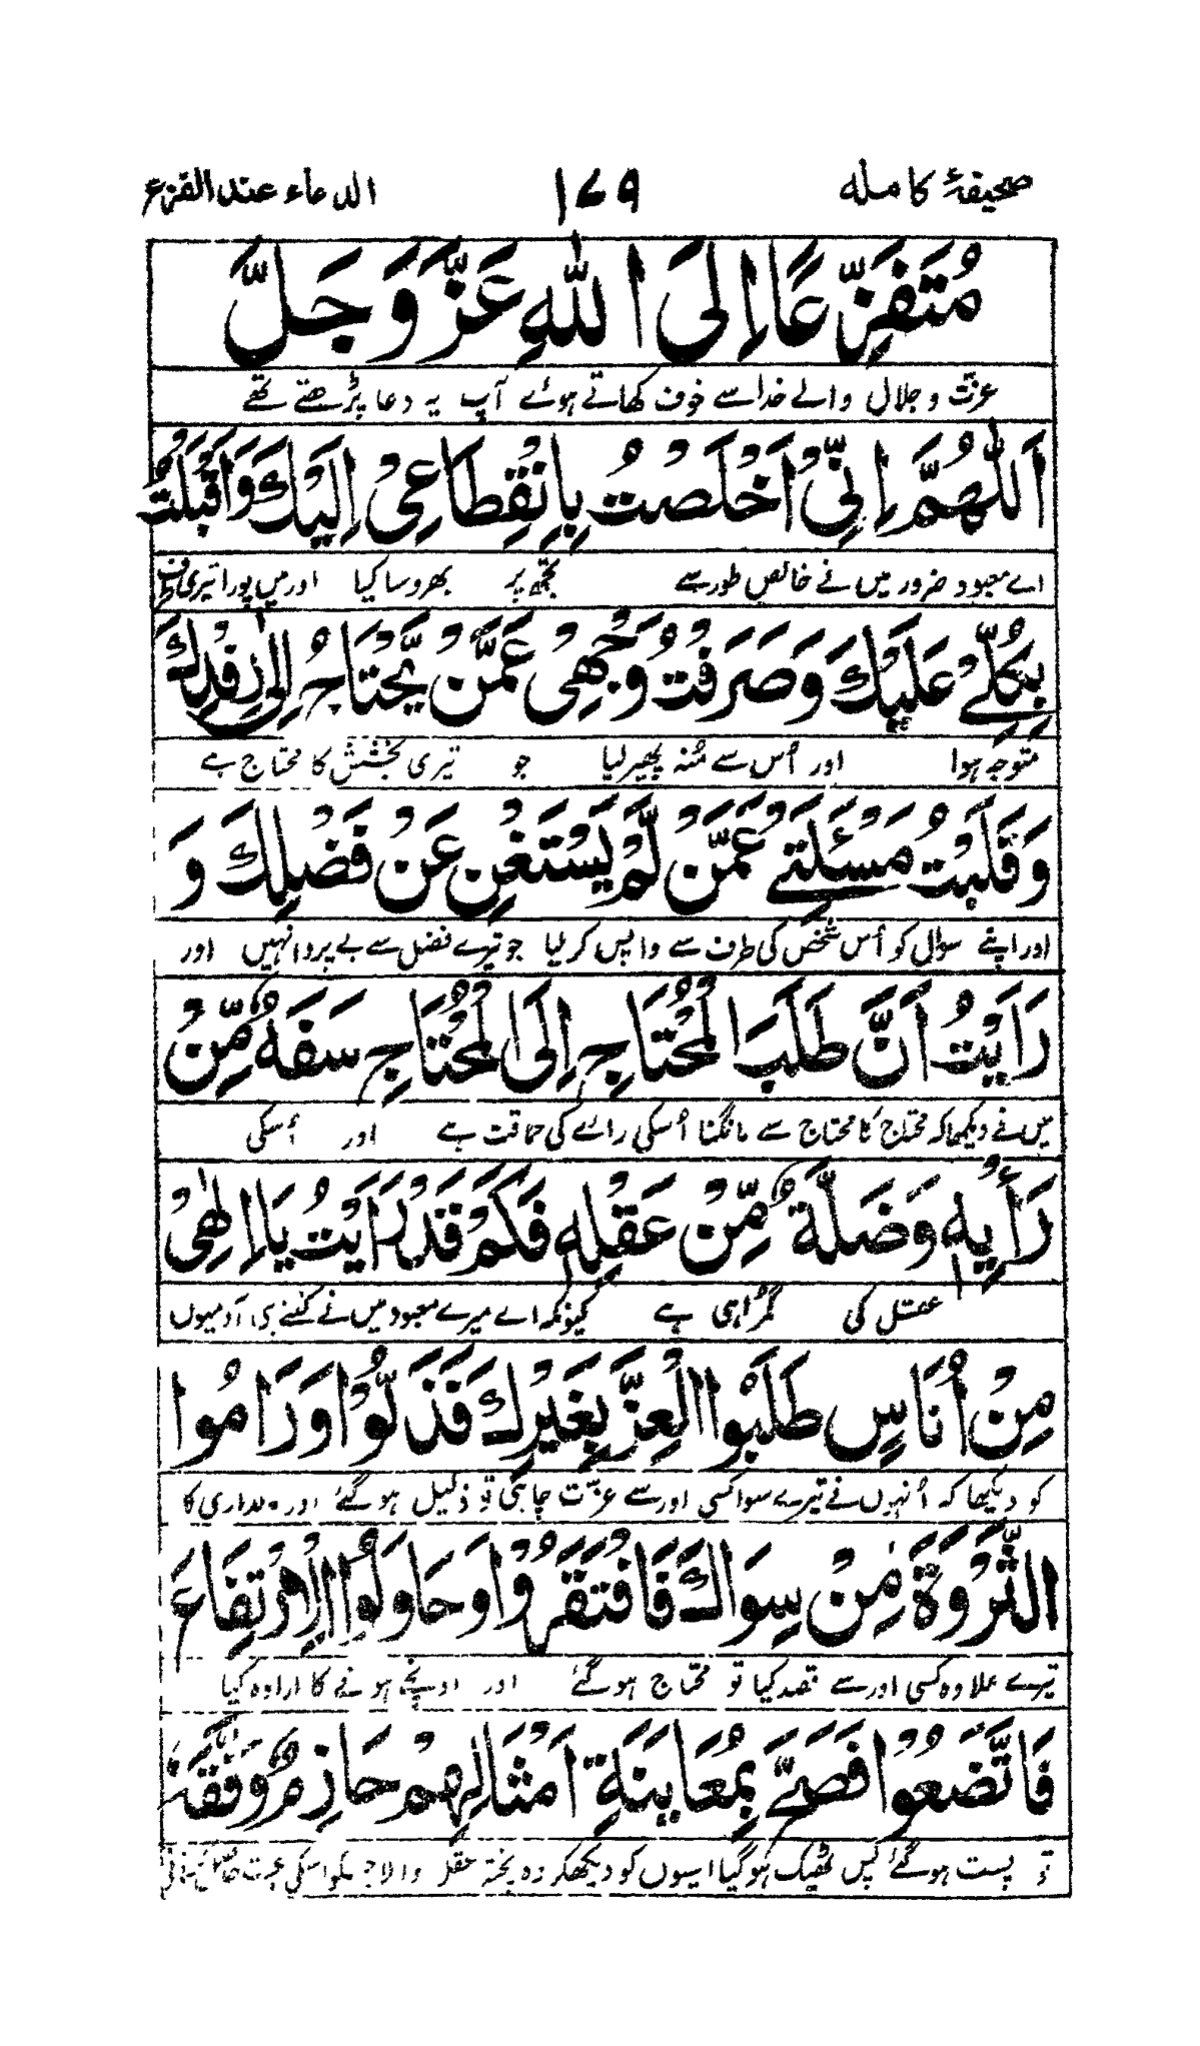 صحیفۂ کاملہ ۱۷۹ الدعاء عند الفزع
مُتَفَزِّعًا اِلَى اللّٰهِ عَزَّ وَجَلَّ
عزت و جلال والے خدا سے خوف کھاتے ہوئے آپ یہ دعا پڑھتے تھے
اَللّٰهُمَّ اِنِّيْ اَخْلَصْتُ بِانْقِطَاعِيْ اِلَيْكَ وَاَقْبَلْتُ
اے معبود ضرور میں نے خالص طور سے تجھ پر بھروسا کیا اور میں پورا تیری طرف
بِكُلِّيْ عَلَيْكَ وَصَرَفْتُ وَجْهِيْ عَمَّنْ يَّحْتَاجُ اِلٰى رِفْدِكَ
متوجہ ہوا اور اُس سے مُنہ پھیر لیا جو تیری بخشش کا محتاج ہے
وَقَلَبْتُ مَسْئَلَتِيْ عَمَّنْ لَّمْ يَسْتَغْنِ عَنْ فَضْلِكَ وَ
اور اپنے سوال کو اُس شخص کی طرف سے واپس کر لیا جو تیرے فضل سے بے پروا نہیں اور
رَاَيْتُ اَنَّ طَلَبَ الْمُحْتَاجِ اِلَى الْمُحْتَاجِ سَفَهٌ مِّنْ
میں نے دیکھا کہ محتاج کا محتاج سے مانگنا اُسکی رائے کی حماقت ہے اور اُسکی
رَأْيِهٖ وَضَلَّةٌ مِّنْ عَقْلِهٖ فَكَمْ قَدْ رَاَيْتُ يَا اِلٰهِيْ
عقل کی گمراہی ہے کیونکہ اے میرے معبود میں نے کتنے ہی آدمیوں
مِنْ اُنَاسٍ طَلَبُوا الْعِزَّ بِغَيْرِكَ فَذَلُّوْا وَرَامُوا
کو دیکھا کہ اُنہوں نے تیرے سوا کسی اور سے عزت چاہی تو ذلیل ہو گئے اور مالداری کا
الثَّرْوَةَ مِنْ سِوَاكَ فَافْتَقَرُوْا وَحَاوَلُوا الْاِرْتِفَاعَ
تیرے علاوہ کسی اور سے قصد کیا تو محتاج ہو گئے اور اونچے ہونے کا ارادہ کیا
فَاتَّضَعُوْا فَصَحَّ بِمُعَايَنَةِ اَمْثَالِهِمْ حَازِمٌ وَفَّقَهٗ
تو پست ہو گئے پس ٹھیک ہو گیا ایسوں کو دیکھکر وہ پختہ عقل والا جسکو اسکی عبرت حاصل